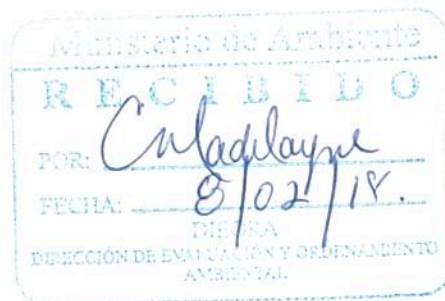 Ministerio de Ambiente
RECIBIDO
POR:
FECHA: 8/02/18.
DIEORA
DIRECCIÓN DE EVALUACIÓN Y ORDENAMIENTO
AMBIENTAL